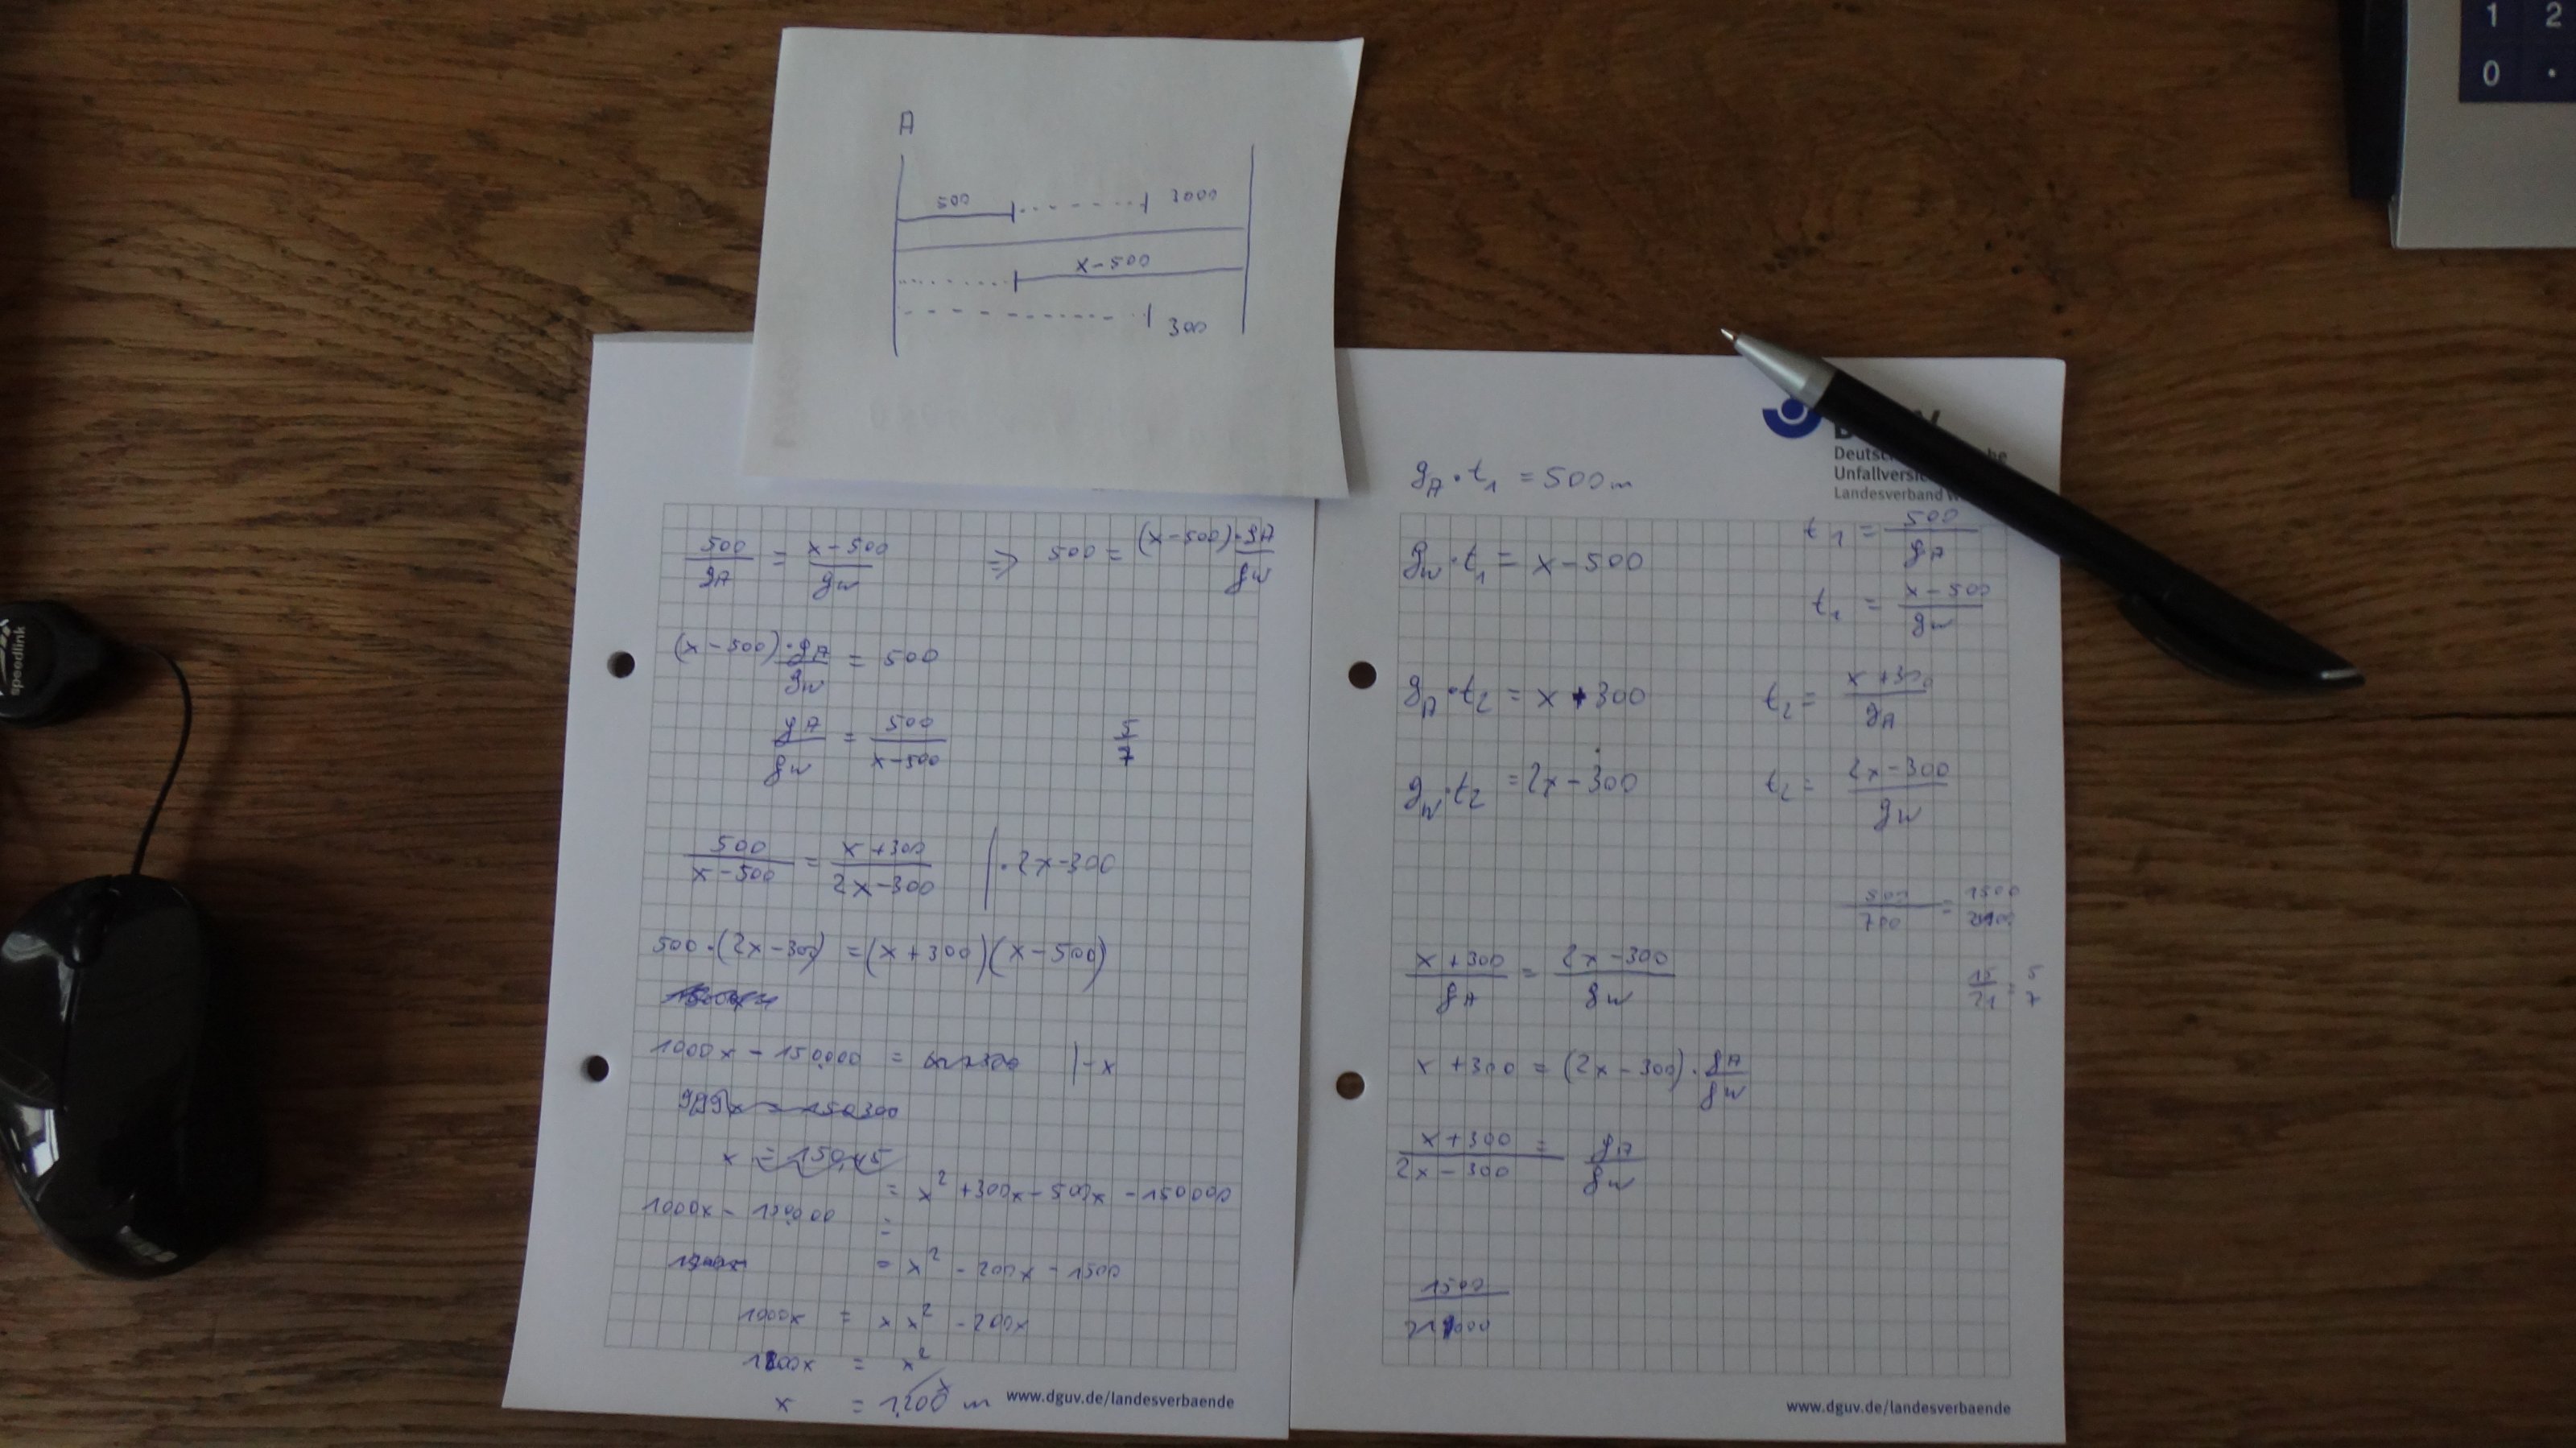 1 2
0 .
A
500 3000
x-500
300
speedlink
500/gA = (x-500)/gW ⇒ 500 = (x-500)·gA/gW
(x-500)·gA/gW = 500
gA/gW = 500/(x-500) 5/7
500/(x-500) = (x+300)/(2x-300) | ·2x-300
500·(2x-300) = (x+300)(x-500)
1000x - 150.000 = | -x
999x = 150300
x = 150,45
= x² +300x - 500x - 150000
1000x - 150.000 =
= x² - 200x - 1500
1000x = x x² - 200x
1200x = x²
x = 1.200 m
www.dguv.de/landesverbaende
Deutsche
Unfallversi
Landesverband
gA·t1 = 500m
t1 = 500/gA
gW·t1 = x-500
t1 = (x-500)/gW
gA·t2 = x+300 t2 = (x+300)/gA
gW·t2 = 2x-300 t2 = (2x-300)/gW
500/700 = 1500/2100
(x+300)/gA = (2x-300)/gW
15/21 = 5/7
x+300 = (2x-300)·gA/gW
(x+300)/(2x-300) = gA/gW
1500
www.dguv.de/landesverbaende